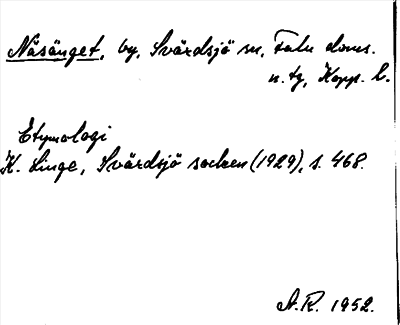 Näsänget, by, Svärdsjö sn, Falu doms.
n. tg, Kopp. l.
Etymologi
K. Linge, Svärdsjö socken (1929), s. 468.
A.R. 1952.